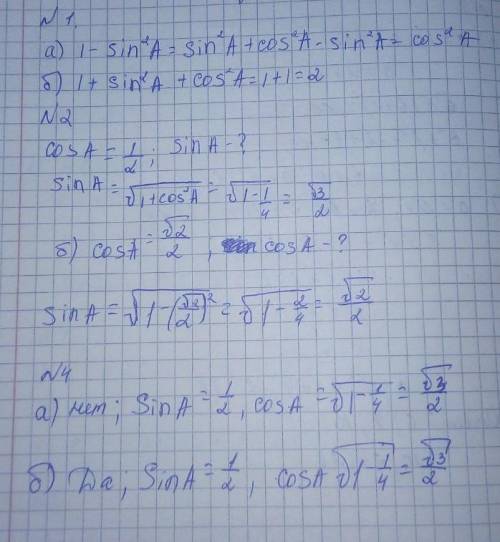 №1.
а) 1 - sin²A = sin²A + cos²A - sin²A = cos²A
б) 1 + sin²A + cos²A = 1 + 1 = 2
№2
cosA = 1/2 ; sinA - ?
sinA = √(1 + cos²A) = √(1 - 1/4) = √3/2
б) cosA = √2/2 , cosA - ?
sinA = √(1 - (√2/2)²) = √(1 - 2/4) = √2/2
№4
а) нет ; sinA = 1/2 , cosA = √(1 - 1/4) = √3/2
б) Да ; sinA = 1/2 , cosA √(1 - 1/4) = √3/2